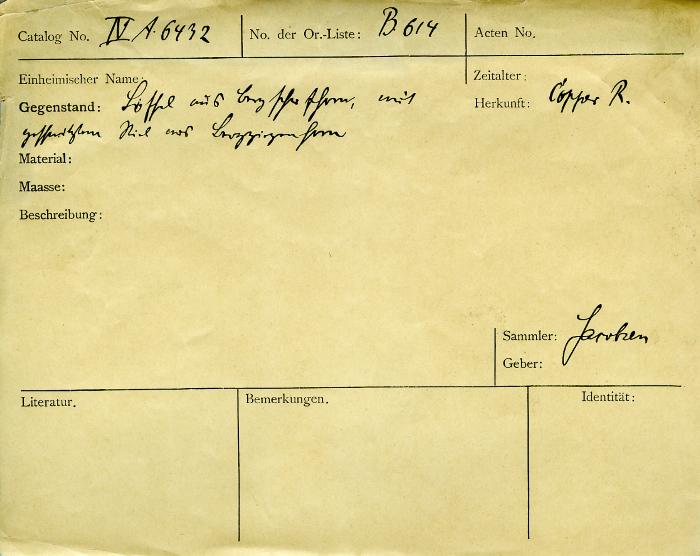 Catalog No. IV A. 6432
No. der Or.-Liste: B 614
Acten No.
Einheimischer Name:
Zeitalter:
Gegenstand: Löffel aus Bergschafhorn, mit
geschnitztem Stiel aus Bergziegenhorn
Herkunft: Copper R.
Material:
Maasse:
Beschreibung:
Sammler: Jacobsen
Geber:
Literatur.
Bemerkungen.
Identität: